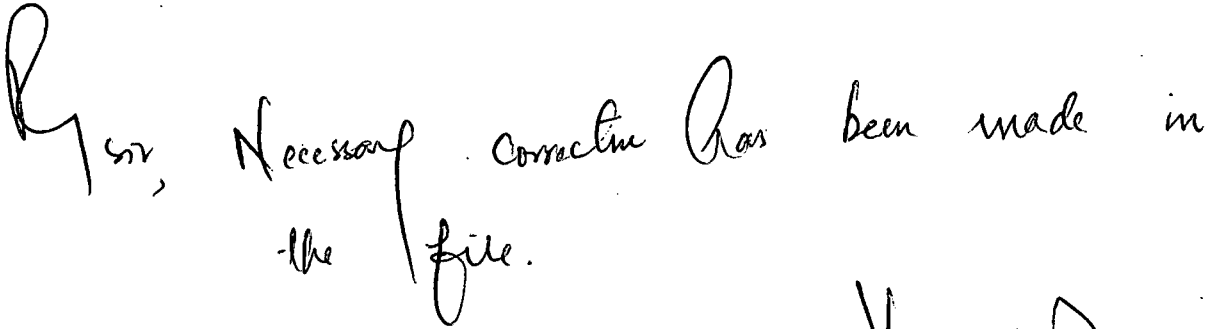 R/sir, Necessary correction has been made in
the file.